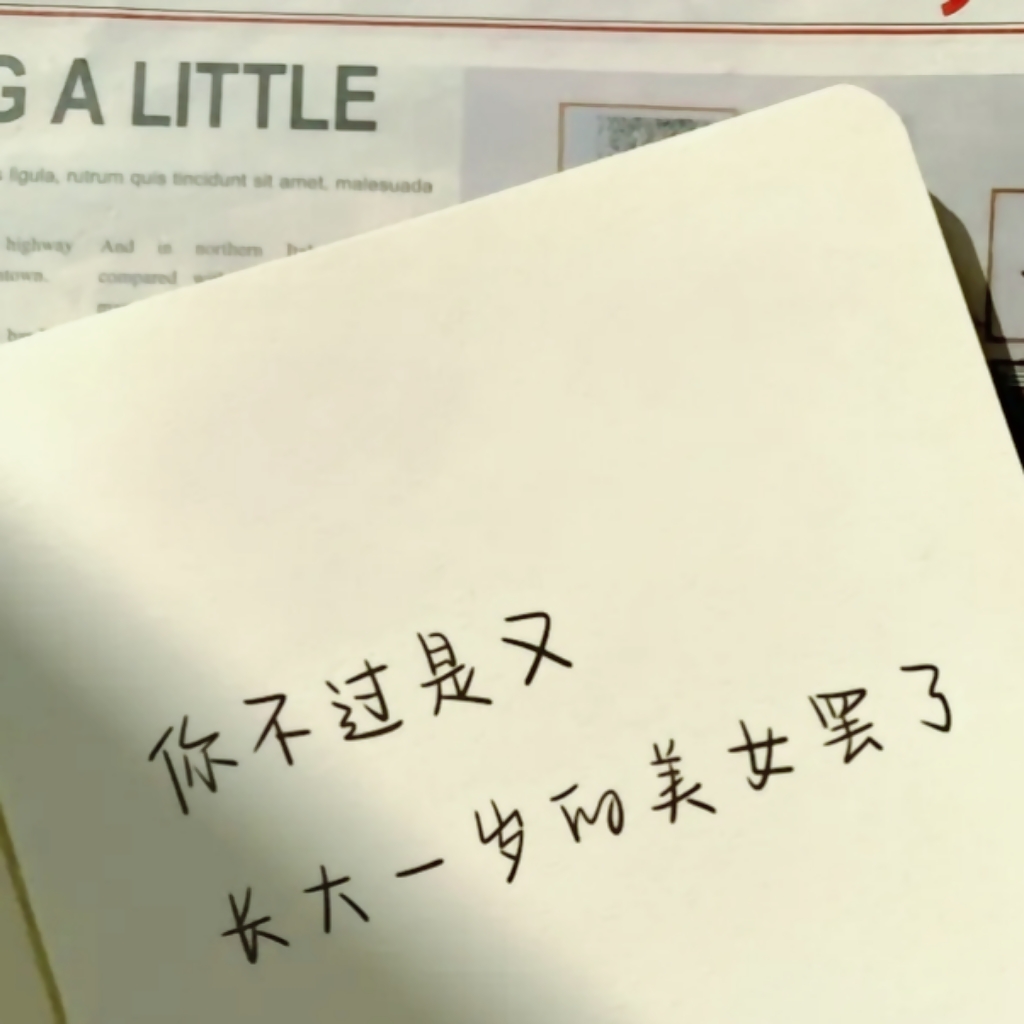 G A LITTLE
ligula, rutrum quis tincidunt sit amet, malesuada
highway And in northern
stown. compared
你不过是又
长大一岁的美女罢了